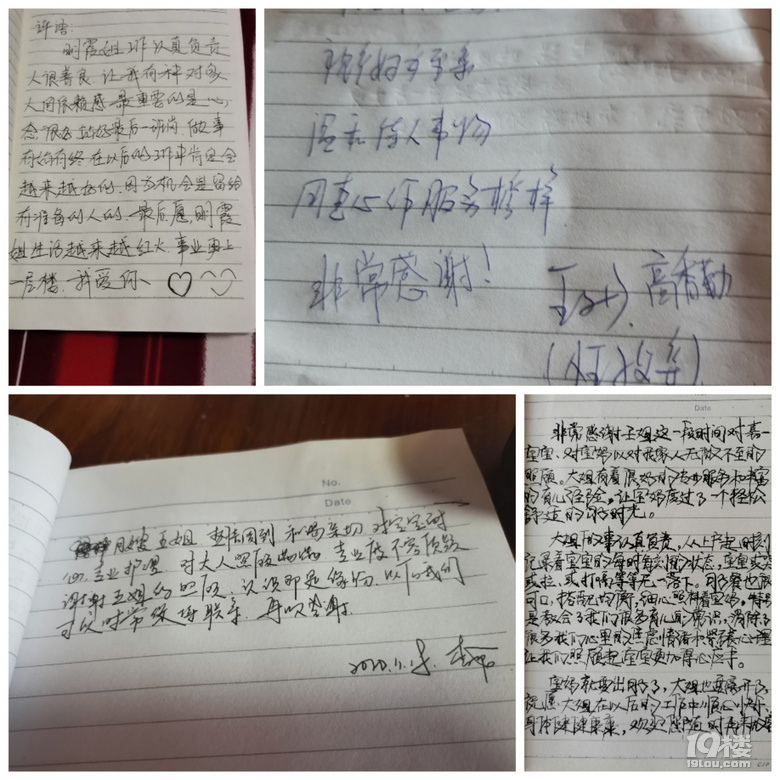 评语:
刚霞姐工作认真负责
人很善良,让我有种对家
人间很亲感 最重要的是心
态很好 站好最后一班岗,做事
有始有终 在以后的工作中肯定会
越来越好的,因为机会是留给
有准备的人的,最后愿,刚霞
姐生活越来越红火,事业更上
一层楼,我爱你、
温和待人事物
用真心作服务榜样
非常感谢!
高香勤
No.
Date
月嫂王姐 和蔼亲切 对宝宝耐
心专业护理 对大人照顾 专业度不容质疑
谢谢王姐的照顾,认识即是缘份,以后我们
可以时常 联系,再次感谢
2020.11.15
Date
非常感谢王姐这一段时间对喜
宝宝、对宝妈以对我家人无微不至的
照顾。大姐有着很好的专业服务和丰富
的育儿经验,让宝妈度过了一个轻松
舒适的月子时光。
大姐做事认真负责,从上户起时刻
记录着宝宝的每时每刻的状态,宝宝或
或拉,或打嗝等等无一落下。月子餐也很
可口,搭配均衡,细心照料着宝妈,特别
是教会了我们很多育儿知识,消除了
很多我们心里的焦虑情绪和紧张心理
让我们照顾起宝宝更加得心应手。
宝妈就要出月子了,大姐也要离开了
祝愿大姐在以后的工作中顺心顺
身体健健康康,欢迎随时再来
19楼
19lou.com